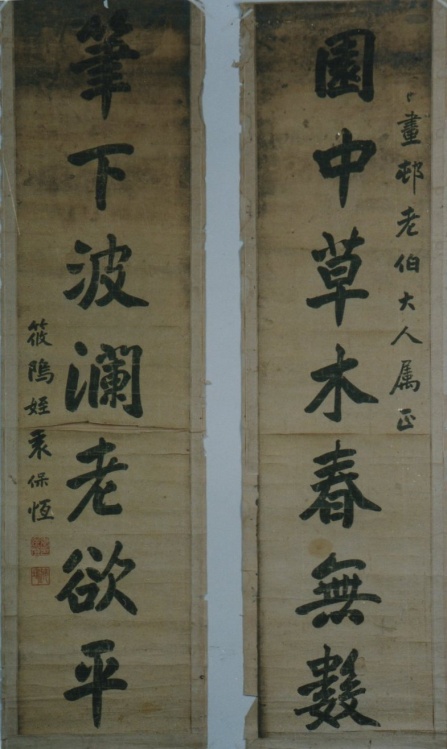 畫邨老伯大人属正
園中草木春無數
筆下波瀾老欲平
筱隝姪袁保恆